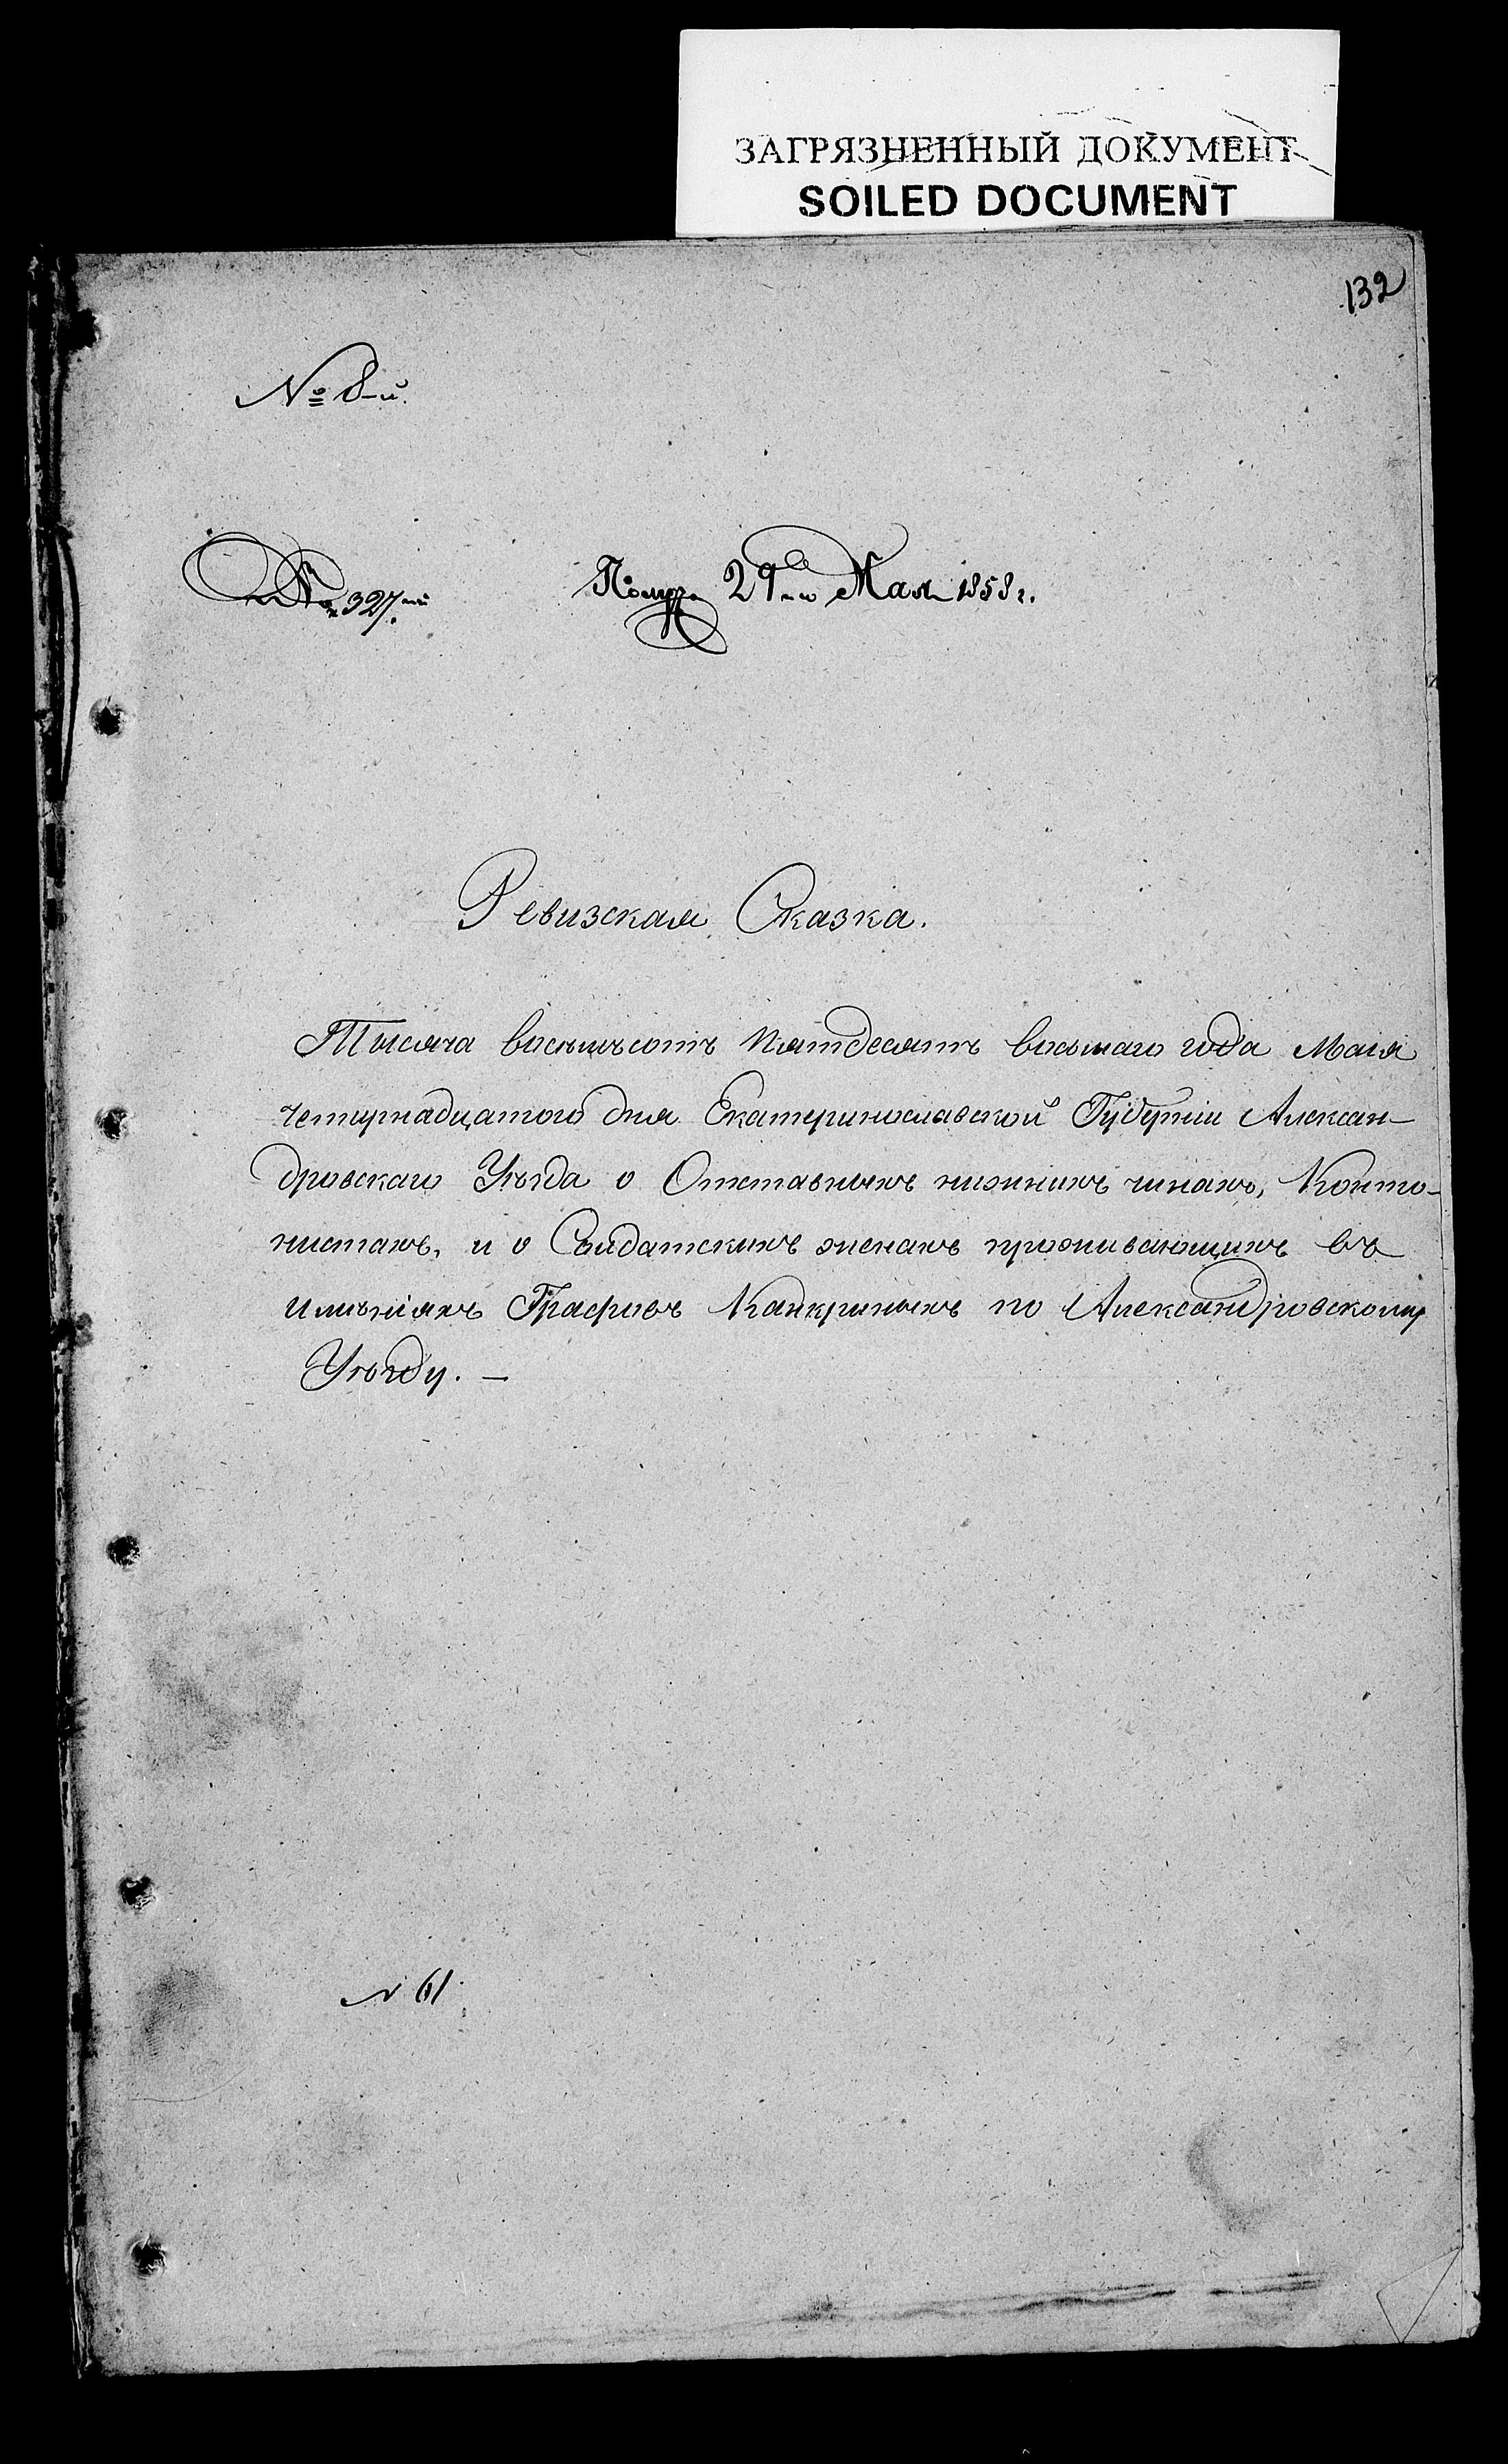 ЗАГРЯЗНЕННЫЙ ДОКУМЕНТ
SOILED DOCUMENT
132
№ 8-й.
№ 327.
Получ. 29-го Мая 1858 г.
Ревизская Сказка.
Тысяча восемьсотъ пятдесятъ восьмаго года Маія
четырнадцатого дня Екатеринославской Губерніи Алексан-
дровскаго Уѣзда о Отставныхъ нижнихъ чинахъ, Контo-
нистахъ, и о Солдатскихъ женахъ проживающихъ въ
имѣніяхъ Графовъ Канкриныхъ по Александровскому
Уѣзду. —
№ 61